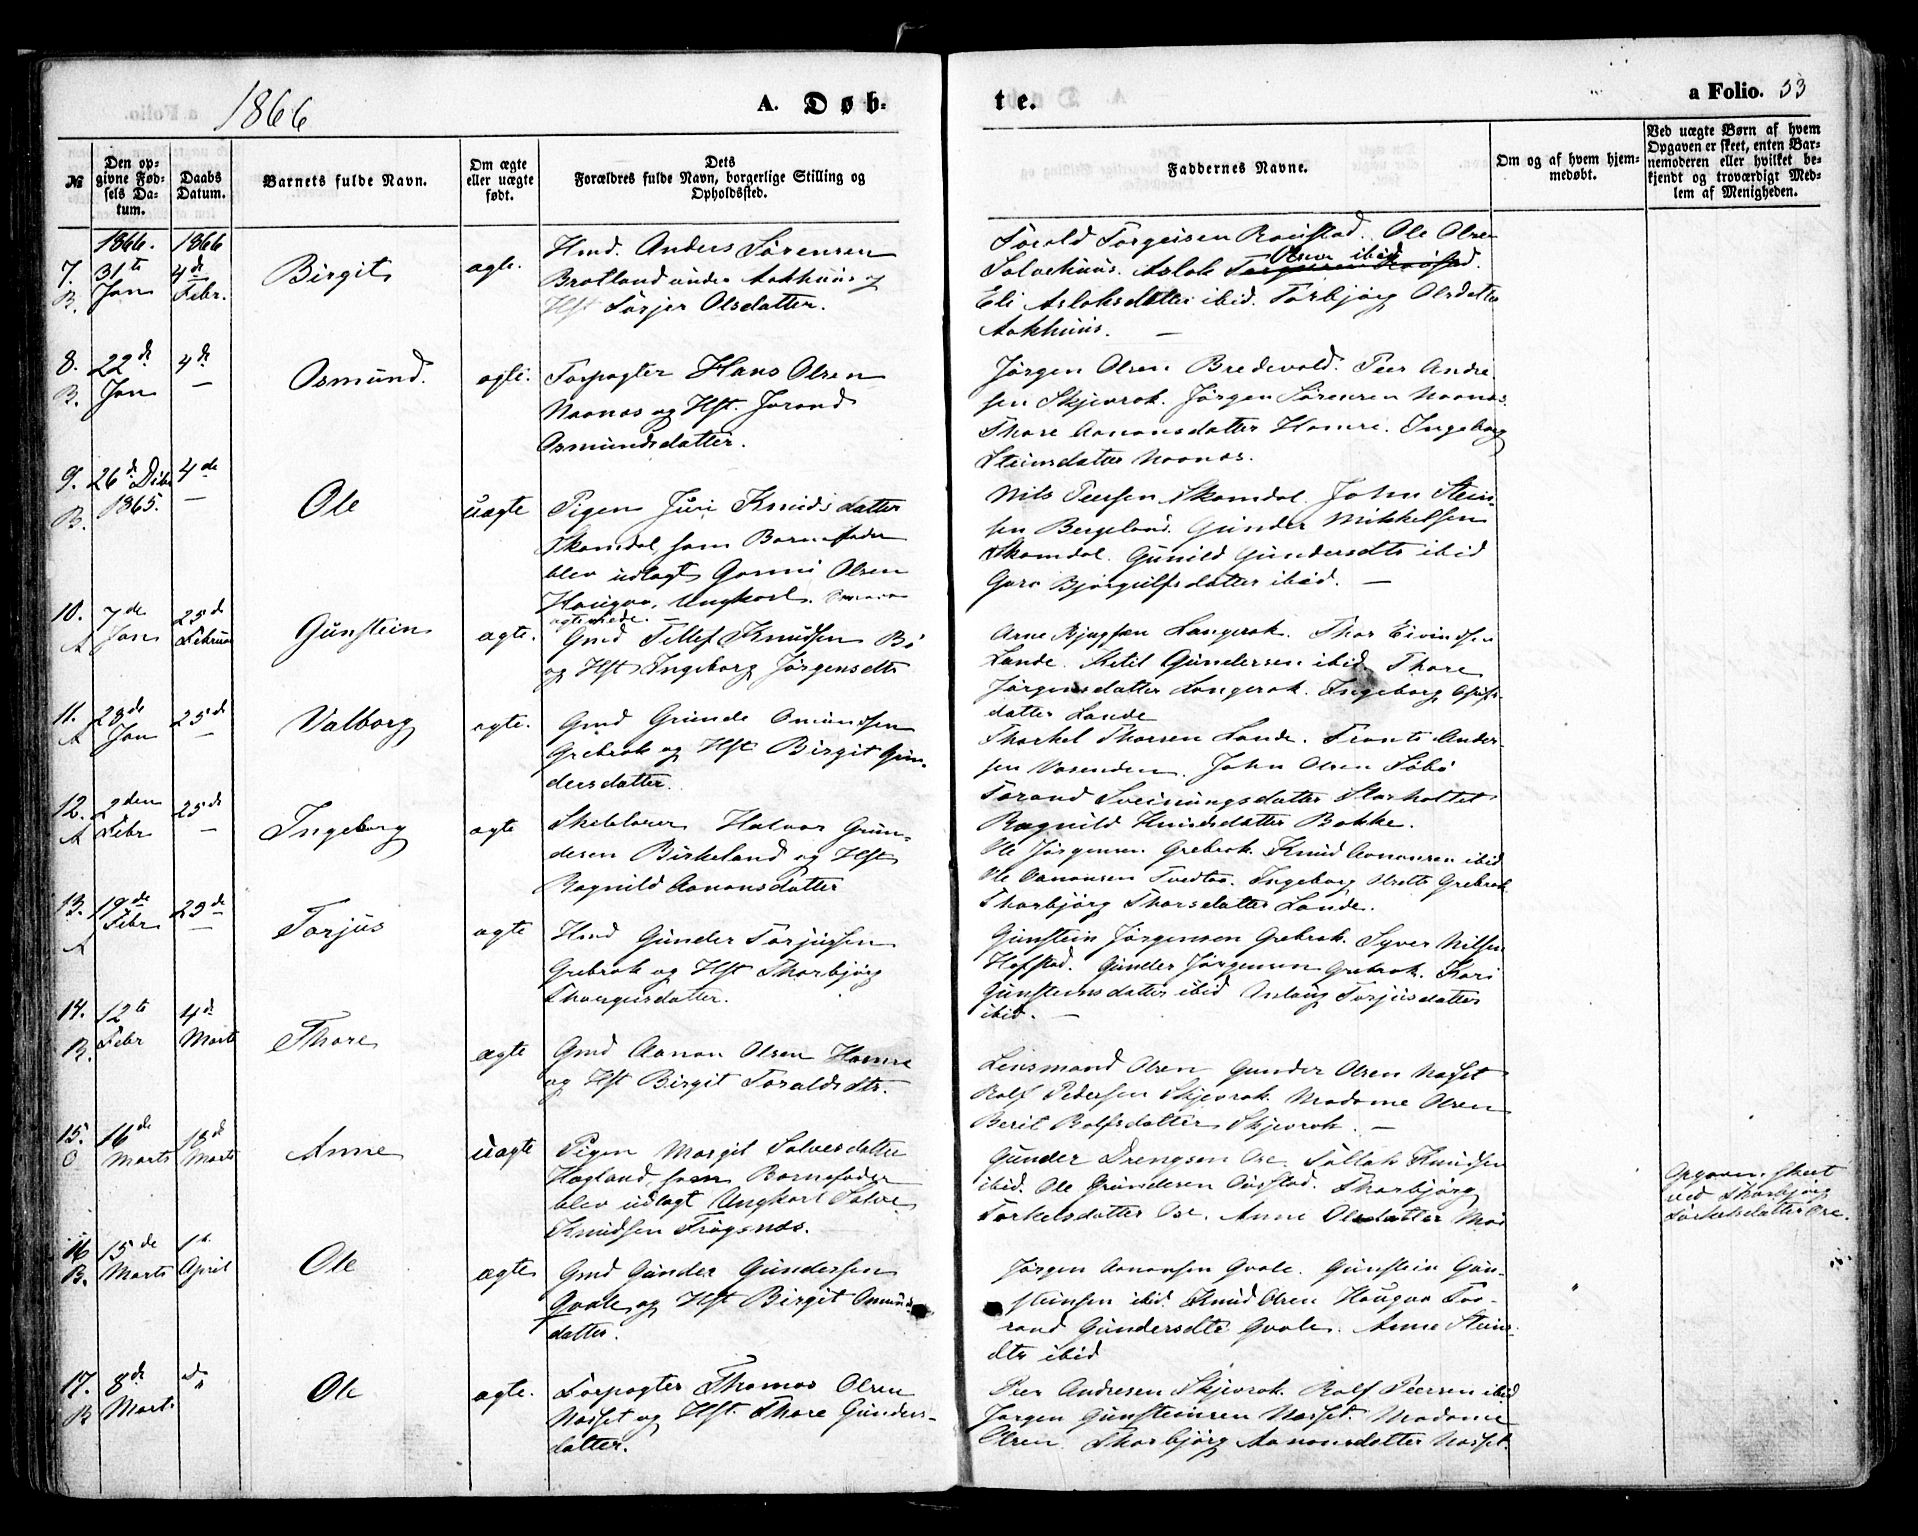 1866
A. Døb-
te.
a Folio. 53
№
Den op-
givne Fød-
sels Da-
tum.
Daabs
Datum.
Barnets fulde Navn.
Om ægte
eller uægte
født.
Dets
Forældres fulde Navn, borgerlige Stilling og
Opholdssted.
Faddernes Navne.
Om og af hvem hjem-
medøbt.
Ved uægte Børn af hvem
Opgaven er skeet, enten Bar-
nemoderen eller hvilket be-
kjendt og troværdigt Med-
lem af Menigheden.
1866. 1866
7. 31te 4de
B. Jan Febr.
Birgit
ægte.
Hmd. Anders Sørensen
Bratland under Aakhuus og
Hst Torjer Olsdatter.
Torald Torgeisen Ole Olsen
Solvehuus. Aslak Olsen ibid
Eli Aslaksdatter ibid. Torbjørg Olsdatter
Aakhuus. —
8. 22de 4de
B. Jan —
Osmund.
ægte.
Forpagter Hans Olsen
Naanes og Hst. Jorand
Osmundsdatter.
Jørgen Olsen Bredvold. Peer Andre
sen Skjevrak. Jørgen Sørensen Naanes.
Thore Aanonsdatter Homre. Ingeborg
Steinsdatter Naanes.
9. 26de Debr 4de
B. 1865. —
Ole
uægte
Pigen Juri Knudsdatter
Skomdal, som Barnefader
blev udlagt Gunni Olsen
Haugaa, Ungkarl.
Nils Peersen Skomdal. John Stein-
sen Bergeland. Gunder Mikkelsen
Skomdal. Gunild Gundersdtr ibid
Guro Bjørgulfsdatter ibid. —
10. 7de 25de
A Jan Februar
Gunstein
ægte.
Gmd Tellef Knudsen Bø
og Hst Ingeborg Jørgensdtr
Arne Langerak. Thor Eivindsen
Lande. Ketil Gundersen ibid Thore
Jørgensdatter Langerak. Ingeborg
datter Lande
11. 28de 25de
A Jan —
Valborg
ægte.
Gmd Gunde Omundsen
Grebrok og Hst Birgit Gun-
dersdatter.
Thorkel Thorsen Lande. Anders-
sen Vasenden. John Olsen
Torand Sveinungsdatter
Ragnild Knudsdatter Bakke.
12. 2den 25de
A Febr —
Ingeborg
ægte
Skolelærer Halvor Gun-
dersen Birkeland og Hst
Ragnild Aanonsdatter
Ole Jørgensen Grebrok. Knud Aanonsen ibid
Ole Aanonsen Tvedtaa. Ingeborg Grebrok
Thorbjørg Thorsdatter Lande.
13. 19de 25de
A Febr —
Torjus
ægte
Hmd Gunder Torjussen
Grebrok og Hst Thorbjørg
Gunstein Jørgensen Grebrok. Syver Nilsen
Hofstad. Gunder Jørgensen Grebrok. Kari
Gunsteinsdatter ibid Torjusdatter
ibid. —
14. 12te 4de
B. Febr Marts
Thore
ægte
Gmd Aanon Olsen Homre
og Hst Birgit Toraldsdtr.
Lensmand Olsen Gunder Olsen Næsset
Rolf Pedersen Skjevrak. Madame Olsen
Berit Rolfsdatter Skjevrak. —
15. 16de 18de
O Marts Marts
Anne
uægte
Pigen Margit Salvesdatter
Hagland, som Barnefader
blev udlagt Ungkarl Salve
Knudsen Frøysnæs.
Gunder Drengsen Ose. Tallak Knudsen
ibid. Ole Gundersen Thorbjørg
Torkelsdatter Ose. Anne Olsdatter
Opgaven skeet
ved Thorbjørg
Torkelsdatter Ose.
16 15de 1te
B. Marts April
Ole
ægte
Gmd Gunder Gundersen
Qvale og Hst Birgit Osmunds
datter.
Jørgen Aanonsen Qvale. Gunstein Gun-
steinsen ibid. Knud Olsen Haugaa To-
rand Gundersdtr Qvale. Anne Steins-
dtr ibid
17. 8de do
B Marts
Ole
ægte.
Forpagter Thomas Olsen
Næsset og Hst. Thore Gunders-
datter.
Peer Andresen Skjevrak. Rolf Peersen ibid
Jørgen Gunsteinsen Næsset. Madame
Olsen. Thorbjørg Aanonsdatter Næsset.